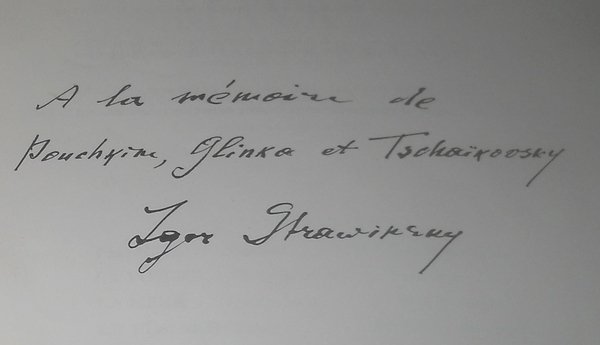 A la mémoire de
Pouchkine, Glinka et Tschaïkovsky
Igor Strawinsky